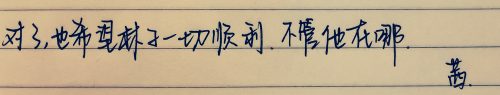 对了,也希望林子一切顺利.不管他在哪.
茜.